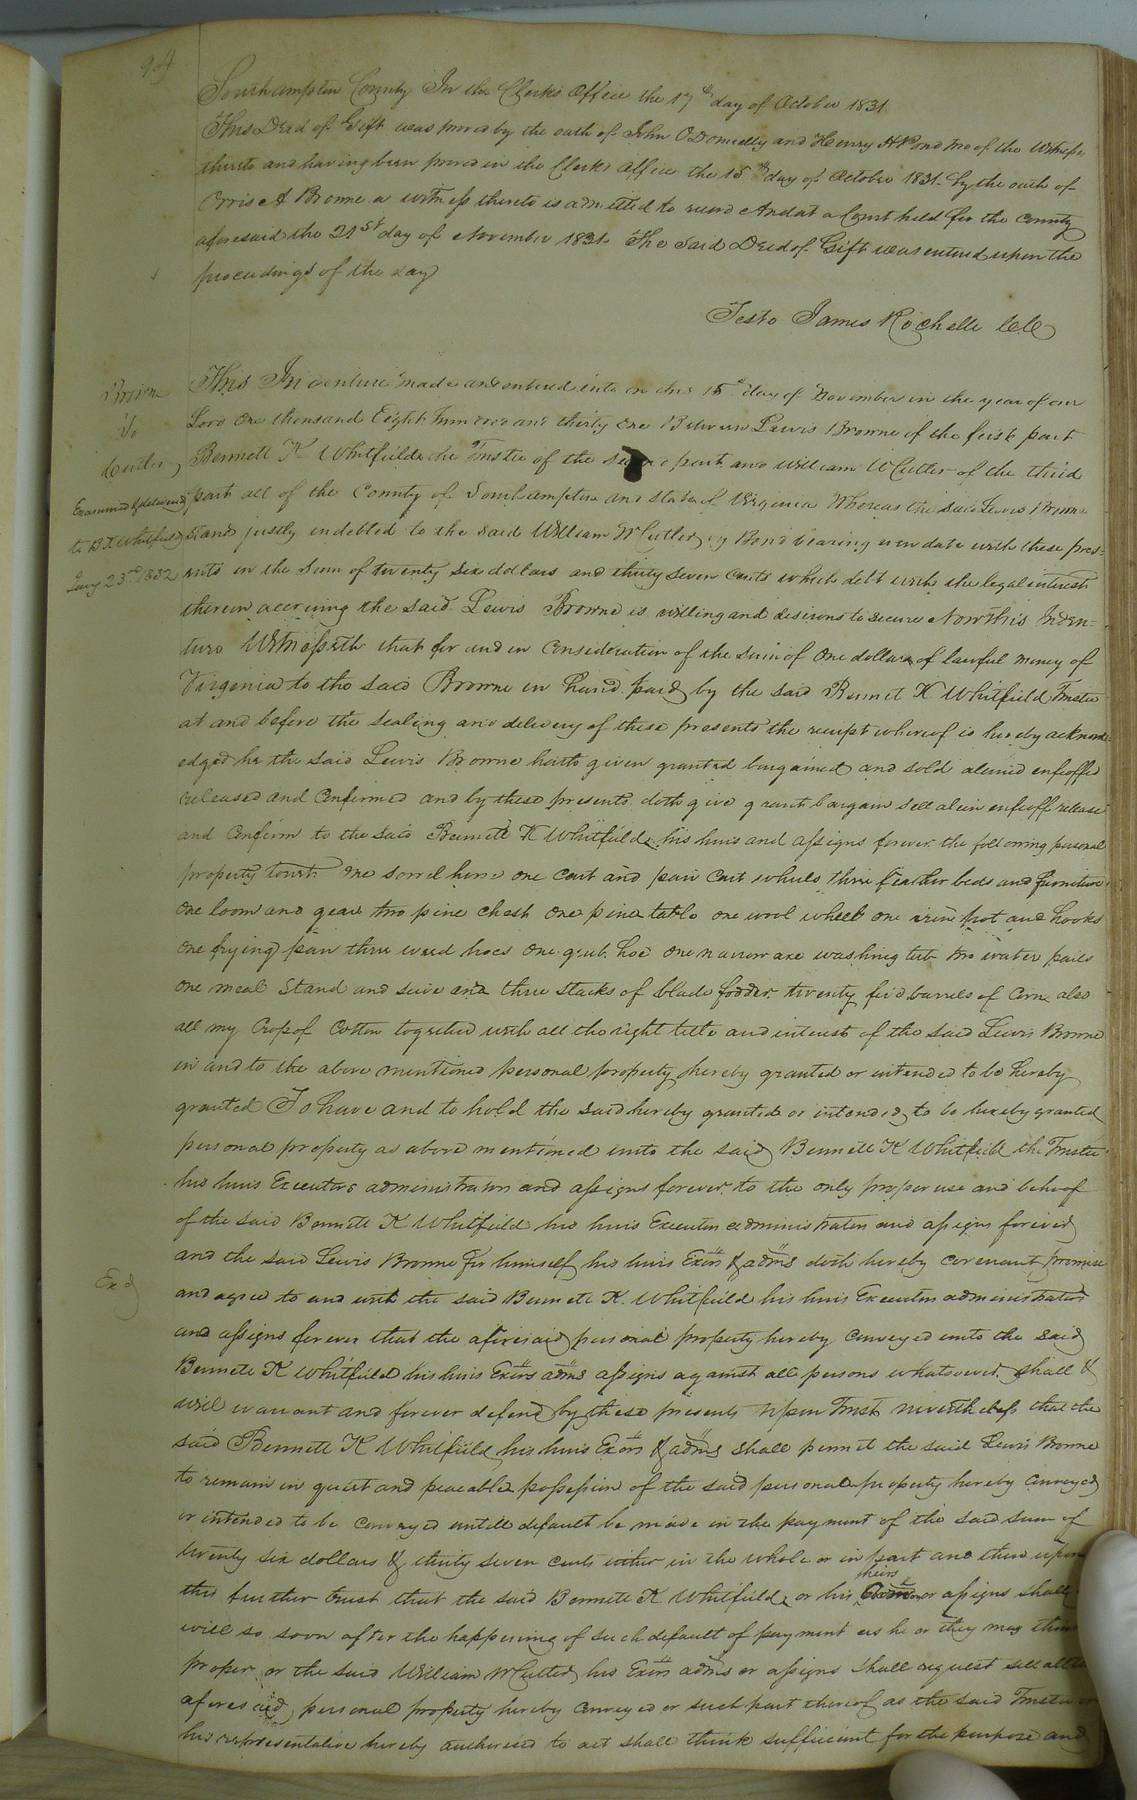 94
Southampton County In the Clerks Office the 17th day of October 1831.
This Deed of Gift was proved by the oath of John ODonnelly and Henry H Pond two of the Witnesses
thereto and having been proved in the Clerks Office the 15th day of October 1831. by the oath of
Orris A Browne a witness thereto is admitted to record And at a Court held for the County
aforesaid the 21st day of November 1831. The Said Deed of Gift was entered upon the
proceedings of the day
Teste James Rochelle ClC
Browne
to
Cutler
Examined & delivered
to B K Whitfield
Jany 23rd 1832
This Indenture made and entered into on this 15th day of November in the year of our
Lord One thousand Eight hundred and thirty One Between Lewis Browne of the first part
Bennett K Whitfield the Trustee of the second part and William W Cutler of the third
part all of the County of Southampton and state of Virginia Whereas the said Lewis Browne
stands justly indebted to the said William W Cutler by Bond bearing even date with these pres=
ents in the Sum of twenty six dollars and thirty seven cents which debt with the legal interest
thereon accruing the said Lewis Browne is willing and desirous to secure Now this Inden=
ture Witnesseth that for and in Consideration of the Sum of One dollar of lawful money of
Virginia to the said Browne in hand paid by the said Bennet K Whitfield Trustee
at and before the sealing and delivery of these presents the receipt whereof is hereby acknowl=
edged he the said Lewis Browne hath given granted bargained and sold aliened enfeoffed
released and Confirmed and by these presents doth give grant bargain sell alien enfeoff release
and Confirm to the said Bennett K Whitfield his heirs and assigns forever the following personal
property towit. One sorrel horse one cart and pair cart wheels three feather beds and furniture
One loom and gear two pine chests one pine table one wool wheel one iron pot and hooks
One frying pan three weed hoes one grub hoe one narrow axe washing tub two water pails
One meal Stand and seive and three stacks of blade fodder. twenty five barrels of Corn also
all my Crop of Cotton together with all the right title and interest of the said Lewis Browne
in and to the above mentioned personal property hereby granted or intended to be hereby
granted To have and to hold the said hereby granted or intended to be hereby granted
personal property as above mentioned unto the said Bennett K Whitfield the Trustee
his heirs Executors administrators and assigns forever to the only proper use and behoof
of the said Bennett K Whitfield his heirs Executors administrators and assigns forever
and the said Lewis Browne for himself his heirs Exors & adms doth hereby covenant promise
Exd
and agree to and with the said Bennett K. Whitfield his heirs Executors administrators
and assigns forever that the aforesaid personal property hereby conveyed unto the said
Bennett K Whitfield his heirs Exors adms assigns against all persons whatsoever shall &
will warrant and forever defend by these presents Upon Trust nevertheless that the
said Bennett K Whitfield his heirs Exors & adms shall permit the said Lewis Browne
to remain in quiet and peaceable possession of the said personal property hereby conveyed
or intended to be conveyed untill default be made in the payment of the said sum of
twenty six dollars & thirty seven cents either in the whole or in part and then upon
this further trust that the said Bennett K Whitfield or his heirs or assigns shall
will so soon after the happening of such default of payment as he or they may think
proper or the said William W Cutler his Exors adms or assigns shall request sell all the
aforesaid personal property hereby conveyed or such part thereof as the said Trustee or
his representative hereby authorised to act shall think sufficient for the purpose and